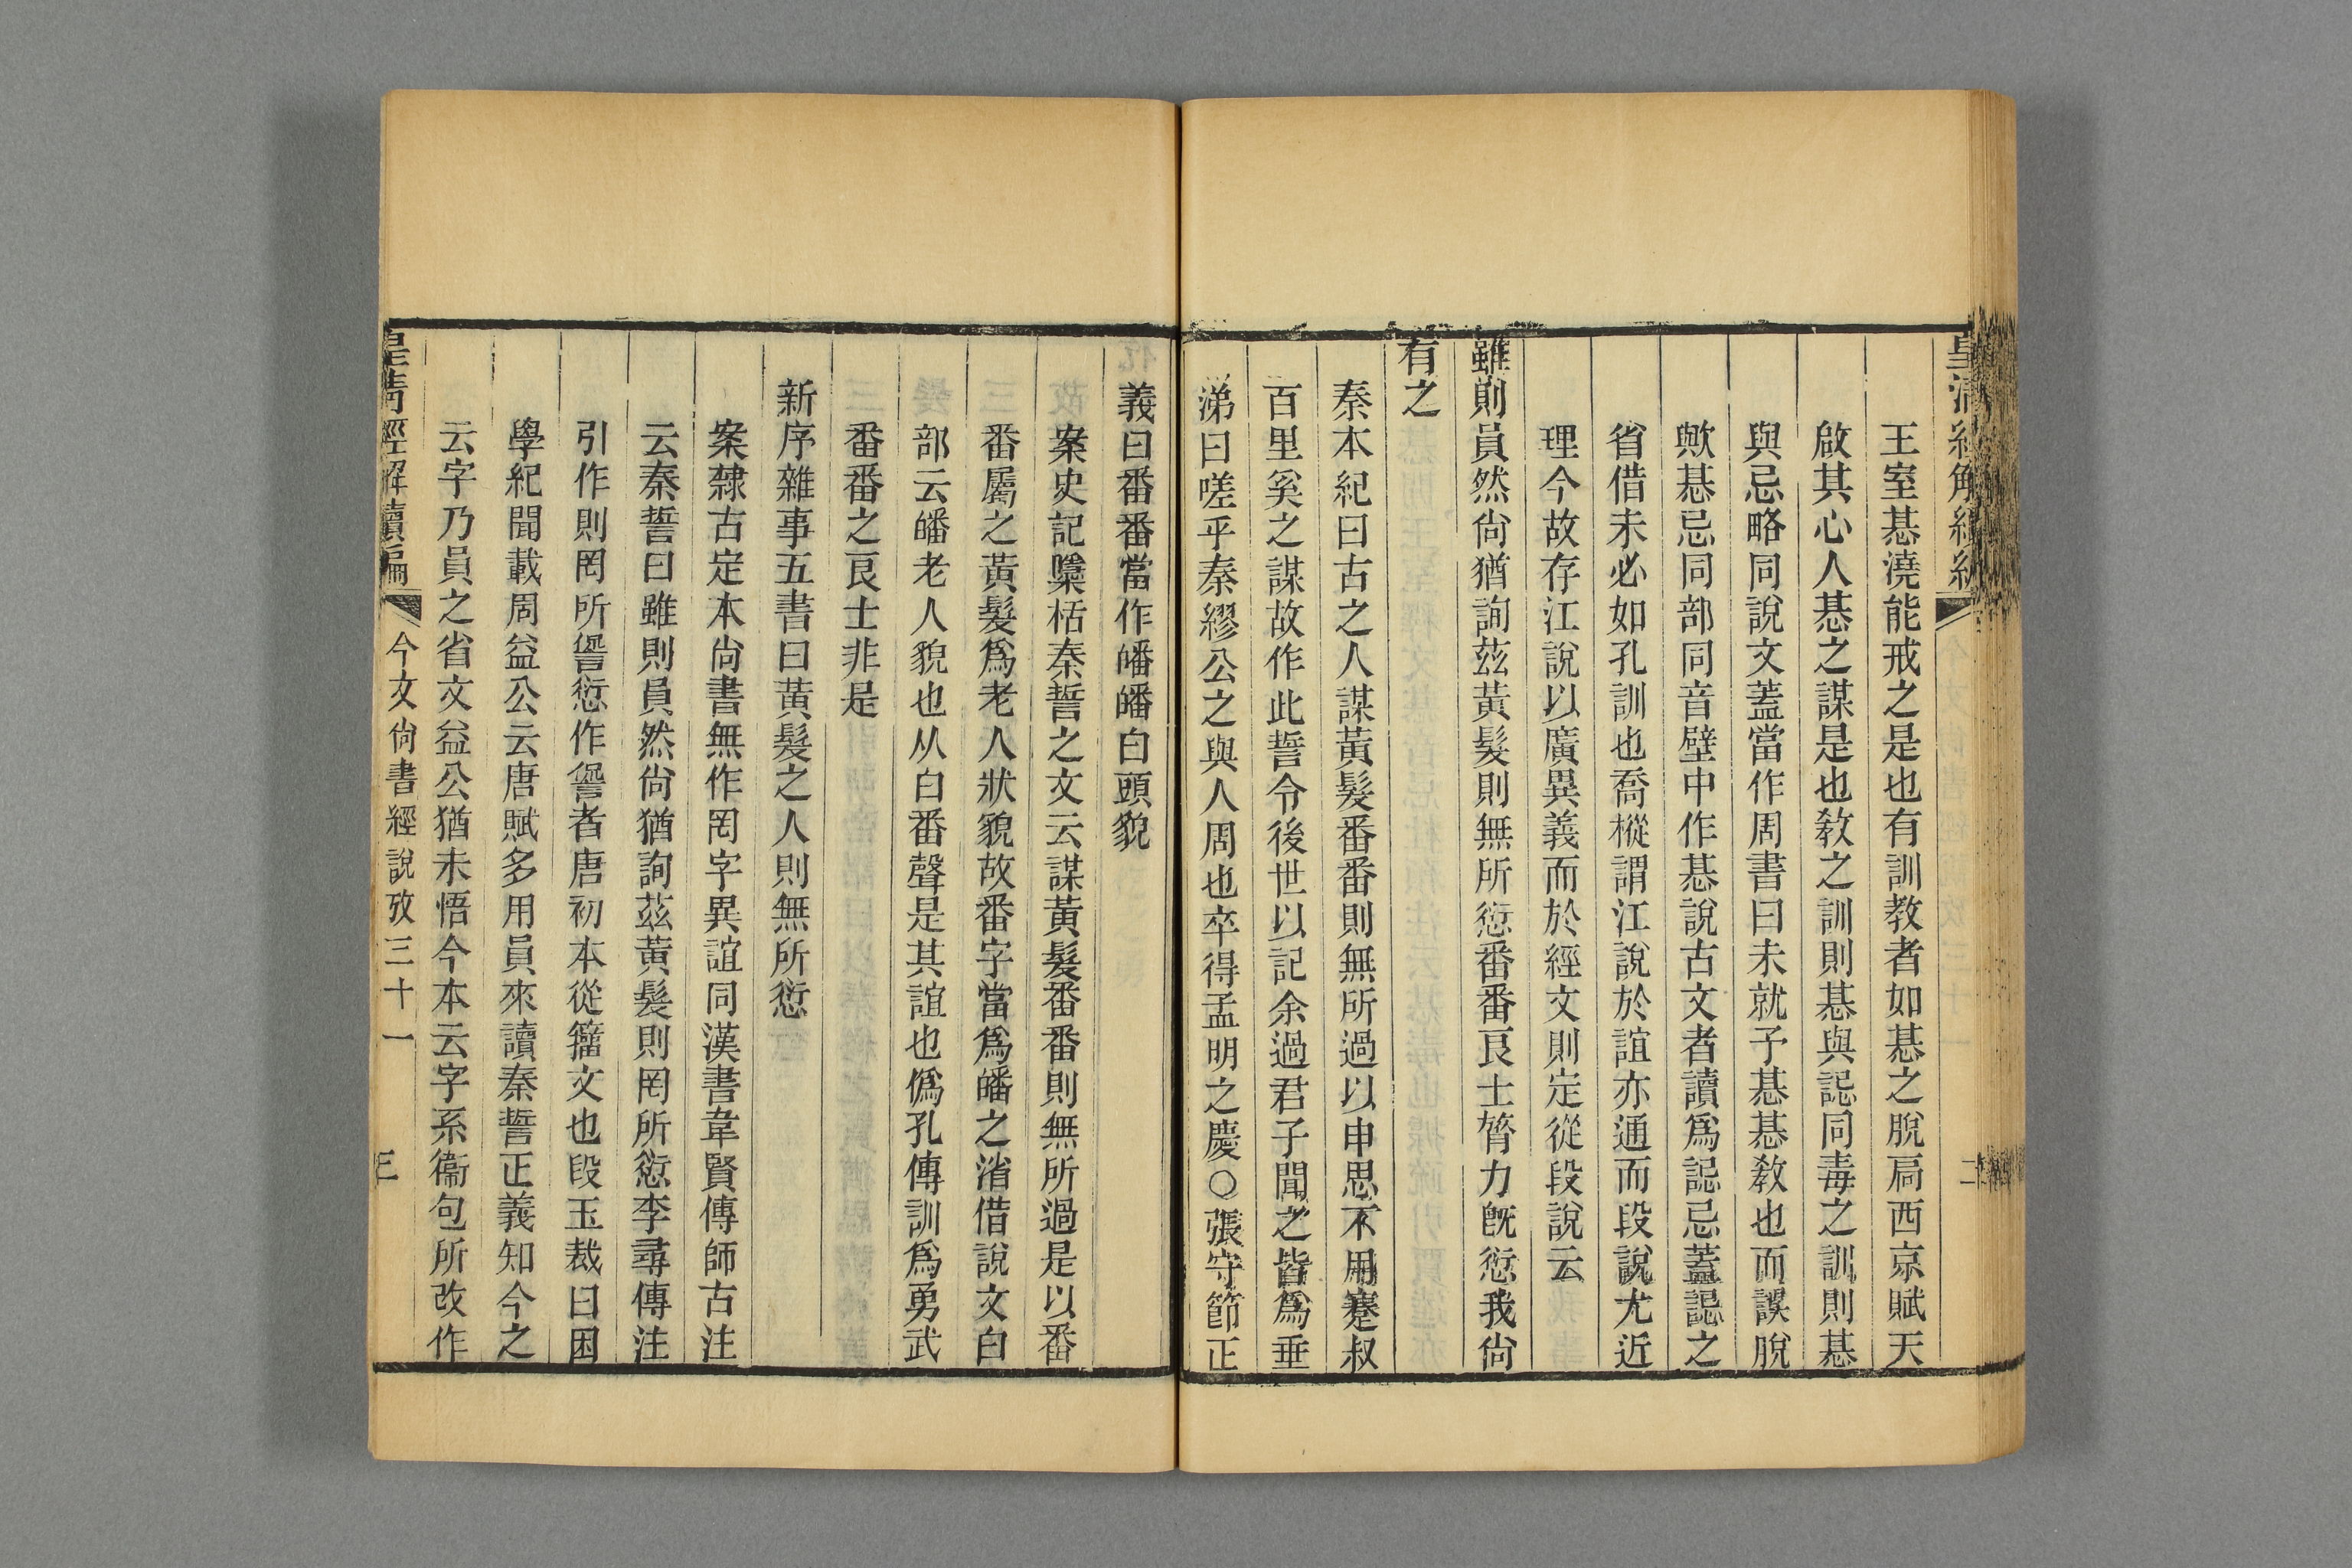 王室惎澆能戒之是也有訓教者如惎之脫扃西京賦天
啟其心人惎之謀是也教之訓則惎與誋同毒之訓則惎
與忌略同說文蓋當作周書曰未就予惎惎教也而誤脫
歟惎忌同部同音壁中作惎說古文者讀爲誋忌蓋誋之
省借未必如孔訓也喬樅謂江說於誼亦通而段說尤近
理今故存江說以廣異義而於經文則定從段說云
雖則員然尙猶詢茲黃髮則無所愆番番良士膂力旣愆我尙
有之
秦本紀曰古之人謀黃髮番番則無所過以申思不用蹇叔
百里奚之謀故作此誓令後世以記余過君子聞之皆爲垂
涕曰嗟乎秦繆公之與人周也卒得孟明之慶○張守節正
義曰番番當作皤皤白頭貌
案史記檃栝秦誓之文云謀黃髮番番則無所過是以番
番屬之黃髮爲老人狀貌故番字當爲皤之渻借說文白
部云皤老人貌也从白番聲是其誼也僞孔傳訓爲勇武
番番之良士非是
新序雜事五書曰黃髮之人則無所愆
案隸古定本尙書無作罔字異誼同漢書韋賢傳師古注
云秦誓曰雖則員然尙猶詢茲黃髮則罔所愆李尋傳注
引作則罔所諐愆作諐者唐初本從籀文也段玉裁曰困
學紀聞載周益公云唐賦多用員來讀秦誓正義知今之
云字乃員之省文益公猶未悟今本云字系衞包所改作
皇淸經解續編
今文尙書經說攷三十一
三